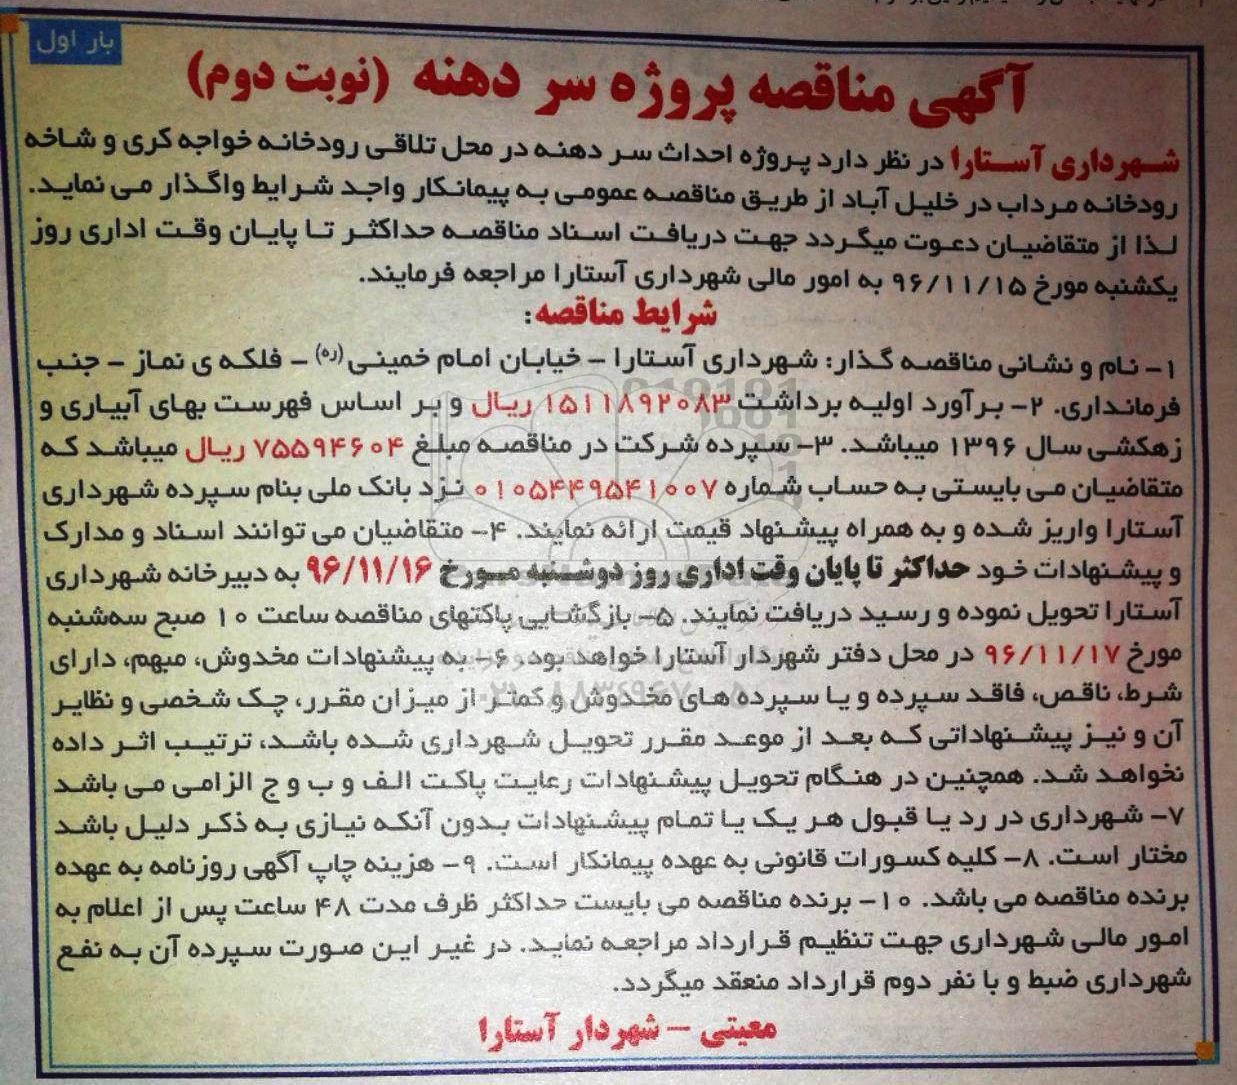 بار اول
آگهی مناقصه پروژه سر دهنه (نوبت دوم)
شهرداری آستارا در نظر دارد پروژه احداث سر دهنه در محل تلاقی رودخانه خواجه کری و شاخه
رودخانه مرداب در خلیل آباد از طریق مناقصه عمومی به پیمانکار واجد شرایط واگذار می نماید.
لذا از متقاضیان دعوت میگردد جهت دریافت اسناد مناقصه حداکثر تا پایان وقت اداری روز
یکشنبه مورخ ۹۶/۱۱/۱۵ به امور مالی شهرداری آستارا مراجعه فرمایند.
شرایط مناقصه:
۱- نام و نشانی مناقصه گذار: شهرداری آستارا - خیابان امام خمینی(ره) - فلکه ی نماز - جنب
فرمانداری. ۲- برآورد اولیه برداشت ۱۵۱۱۸۹۲۰۸۳ ریال و بر اساس فهرست بهای آبیاری و
زهکشی سال ۱۳۹۶ میباشد. ۳- سپرده شرکت در مناقصه مبلغ ۷۵۵۹۴۶۰۴ ریال میباشد که
متقاضیان می بایستی به حساب شماره ۰۱۰۵۴۴۹۵۴۱۰۰۷ نزد بانک ملی بنام سپرده شهرداری
آستارا واریز شده و به همراه پیشنهاد قیمت ارائه نمایند. ۴- متقاضیان می توانند اسناد و مدارک
و پیشنهادات خود حداکثر تا پایان وقت اداری روز دوشنبه مورخ ۹۶/۱۱/۱۶ به دبیرخانه شهرداری
آستارا تحویل نموده و رسید دریافت نمایند. ۵- بازگشایی پاکتهای مناقصه ساعت ۱۰ صبح سه‌شنبه
مورخ ۹۶/۱۱/۱۷ در محل دفتر شهردار آستارا خواهد بود. ۶- به پیشنهادات مخدوش، مبهم، دارای
شرط، ناقص، فاقد سپرده و یا سپرده های مخدوش و کمتر از میزان مقرر، چک شخصی و نظایر
آن و نیز پیشنهاداتی که بعد از موعد مقرر تحویل شهرداری شده باشد، ترتیب اثر داده
نخواهد شد. همچنین در هنگام تحویل پیشنهادات رعایت پاکت الف و ب و ج الزامی می باشد
۷- شهرداری در رد یا قبول هر یک یا تمام پیشنهادات بدون آنکه نیازی به ذکر دلیل باشد
مختار است. ۸- کلیه کسورات قانونی به عهده پیمانکار است. ۹- هزینه چاپ آگهی روزنامه به عهده
برنده مناقصه می باشد. ۱۰- برنده مناقصه می بایست حداکثر ظرف مدت ۴۸ ساعت پس از اعلام به
امور مالی شهرداری جهت تنظیم قرارداد مراجعه نماید. در غیر این صورت سپرده آن به نفع
شهرداری ضبط و با نفر دوم قرارداد منعقد میگردد.
معیتی - شهردار آستارا